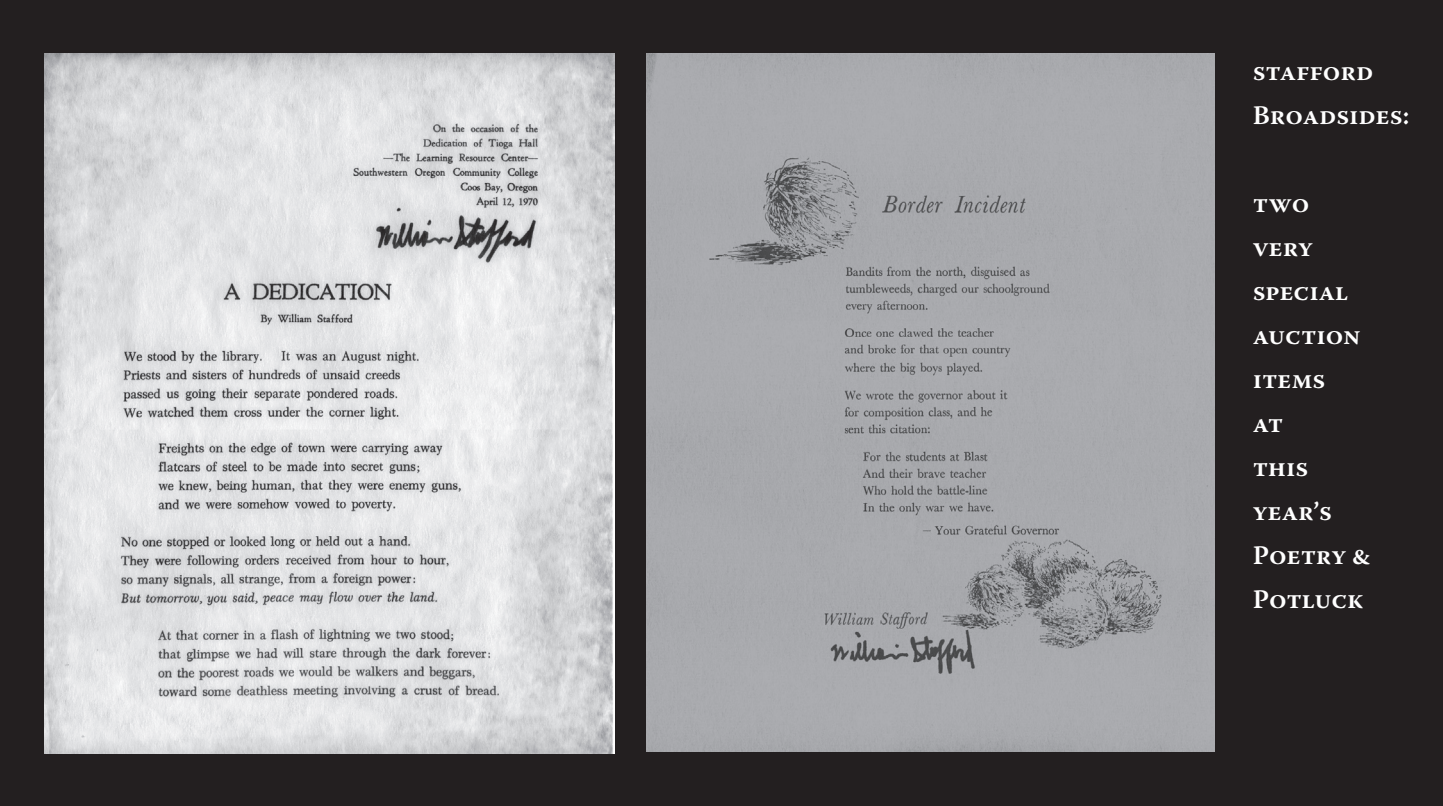 On the occasion of the
Dedication of Tioga Hall
—The Learning Resource Center—
Southwestern Oregon Community College
Coos Bay, Oregon
April 12, 1970
William Stafford
A DEDICATION
By William Stafford
We stood by the library. It was an August night.
Priests and sisters of hundreds of unsaid creeds
passed us going their separate pondered roads.
We watched them cross under the corner light.
Freights on the edge of town were carrying away
flatcars of steel to be made into secret guns;
we knew, being human, that they were enemy guns,
and we were somehow vowed to poverty.
No one stopped or looked long or held out a hand.
They were following orders received from hour to hour,
so many signals, all strange, from a foreign power:
But tomorrow, you said, peace may flow over the land.
At that corner in a flash of lightning we two stood;
that glimpse we had will stare through the dark forever:
on the poorest roads we would be walkers and beggars,
toward some deathless meeting involving a crust of bread.
Border Incident
Bandits from the north, disguised as
tumbleweeds, charged our schoolground
every afternoon.
Once one clawed the teacher
and broke for that open country
where the big boys played.
We wrote the governor about it
for composition class, and he
sent this citation:
For the students at Blast
And their brave teacher
Who hold the battle-line
In the only war we have.
– Your Grateful Governor
William Stafford
William Stafford
STAFFORD
BROADSIDES:
TWO
VERY
SPECIAL
AUCTION
ITEMS
AT
THIS
YEAR'S
POETRY &
POTLUCK